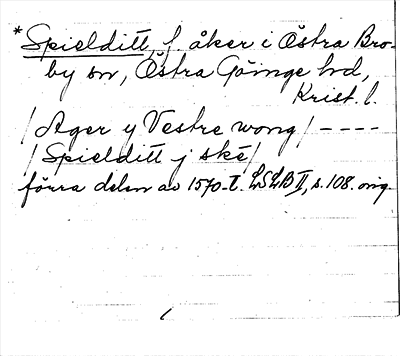 *Spielditt, f. åker i Östra Bro-
by sn, Östra Göinge hd,
Krist. l.
/ Ager y Vestre wong / ----
/ Spielditt j ské /
förra delen av 1570-t. LSLB II, s. 108. orig.